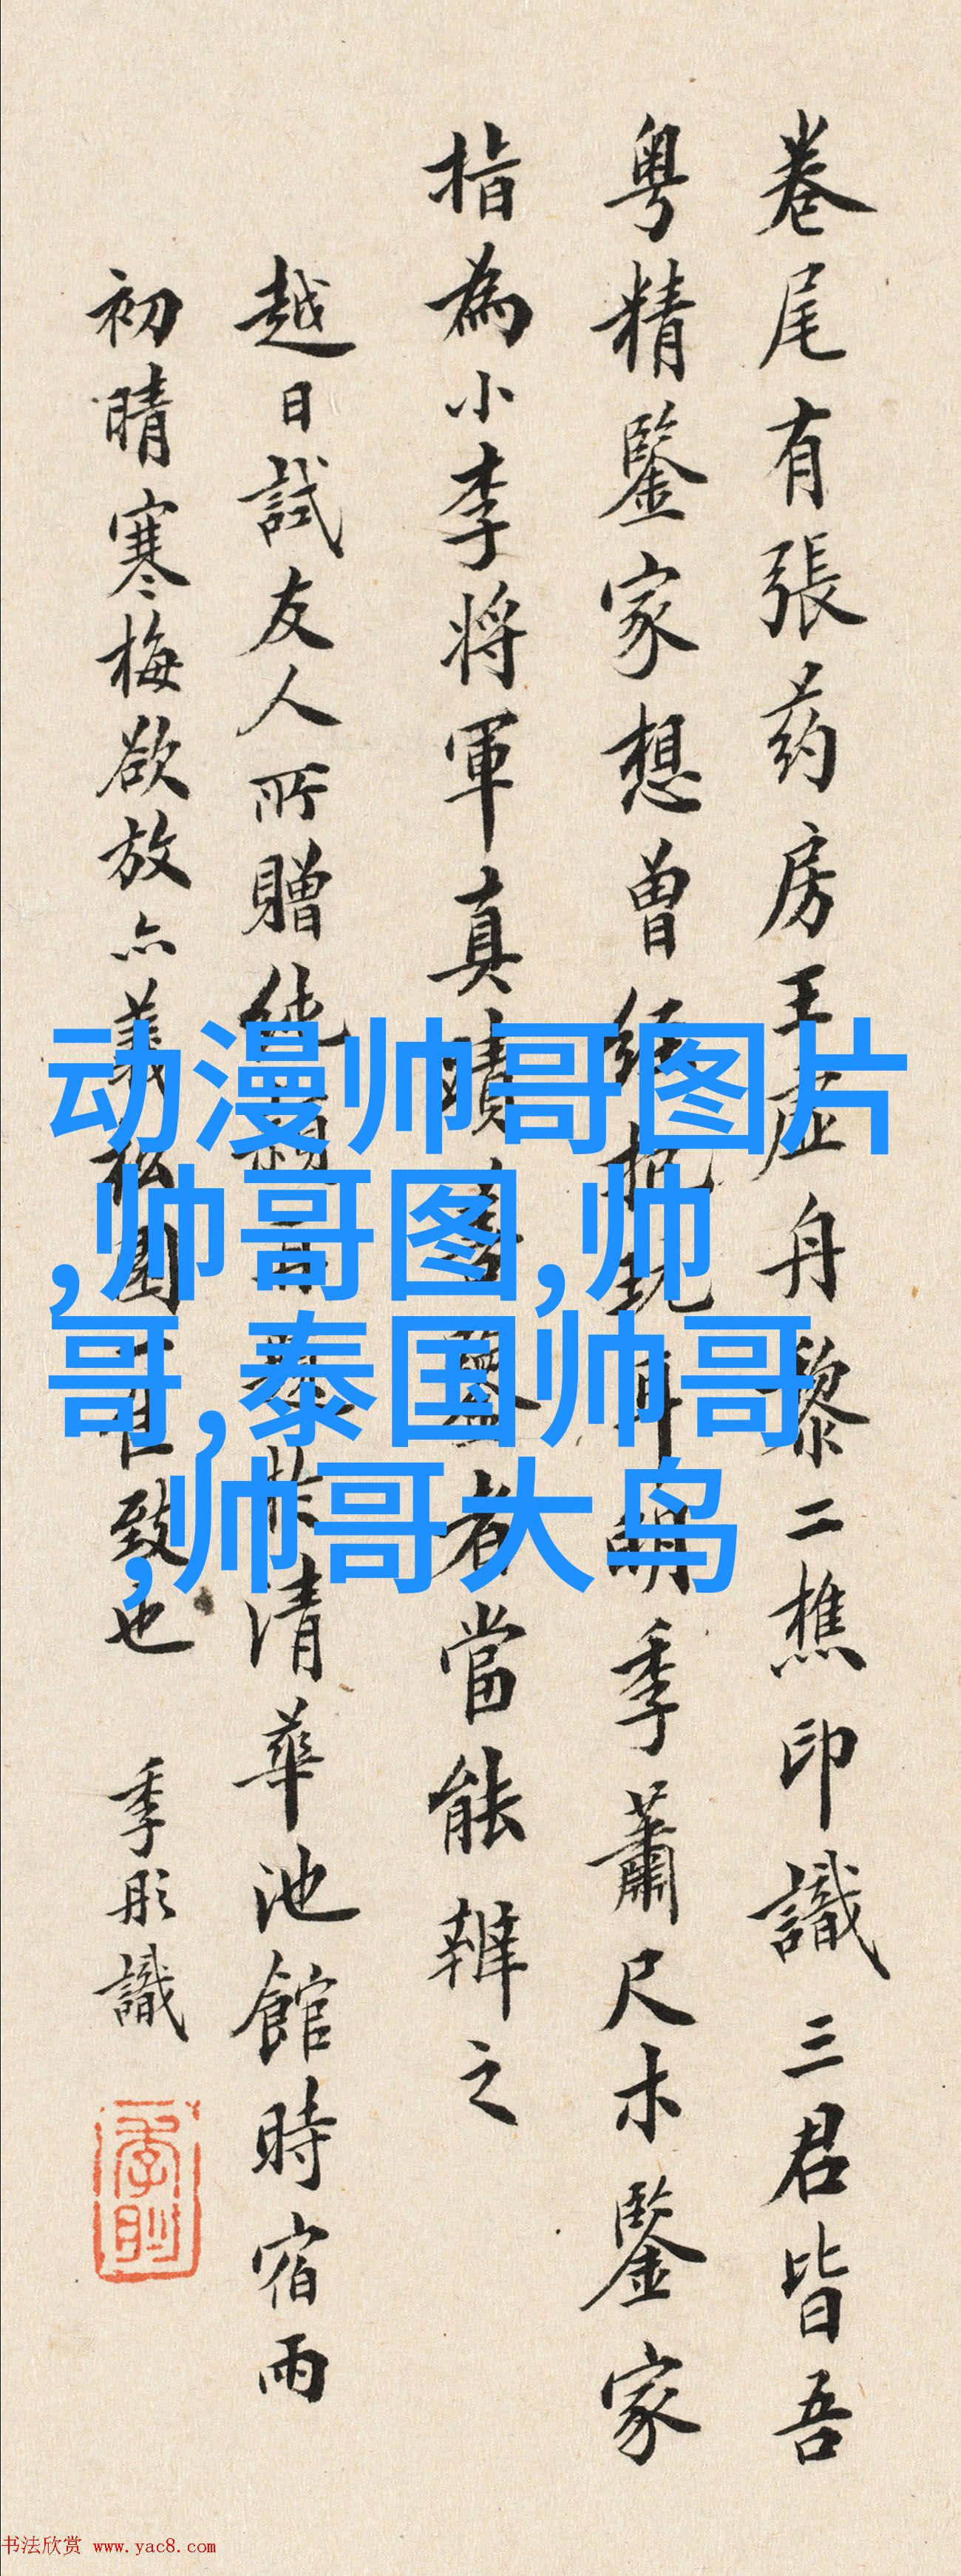 卷尾有張药房王虚舟黎二樵印識三君皆吾
粤精鑒家想曾经抚玩耳明季蕭尺木鑒家
指為小李将軍真蹟善鑒者當能辨之
越日試友人所贈
清華池館時宿雨
初晴寒梅欲放亦
園
致也
季彤識
动漫帅哥图片
,帅哥图,帅
哥,泰国帅哥
,帅哥大鸟
书法欣赏 www.yac8.com